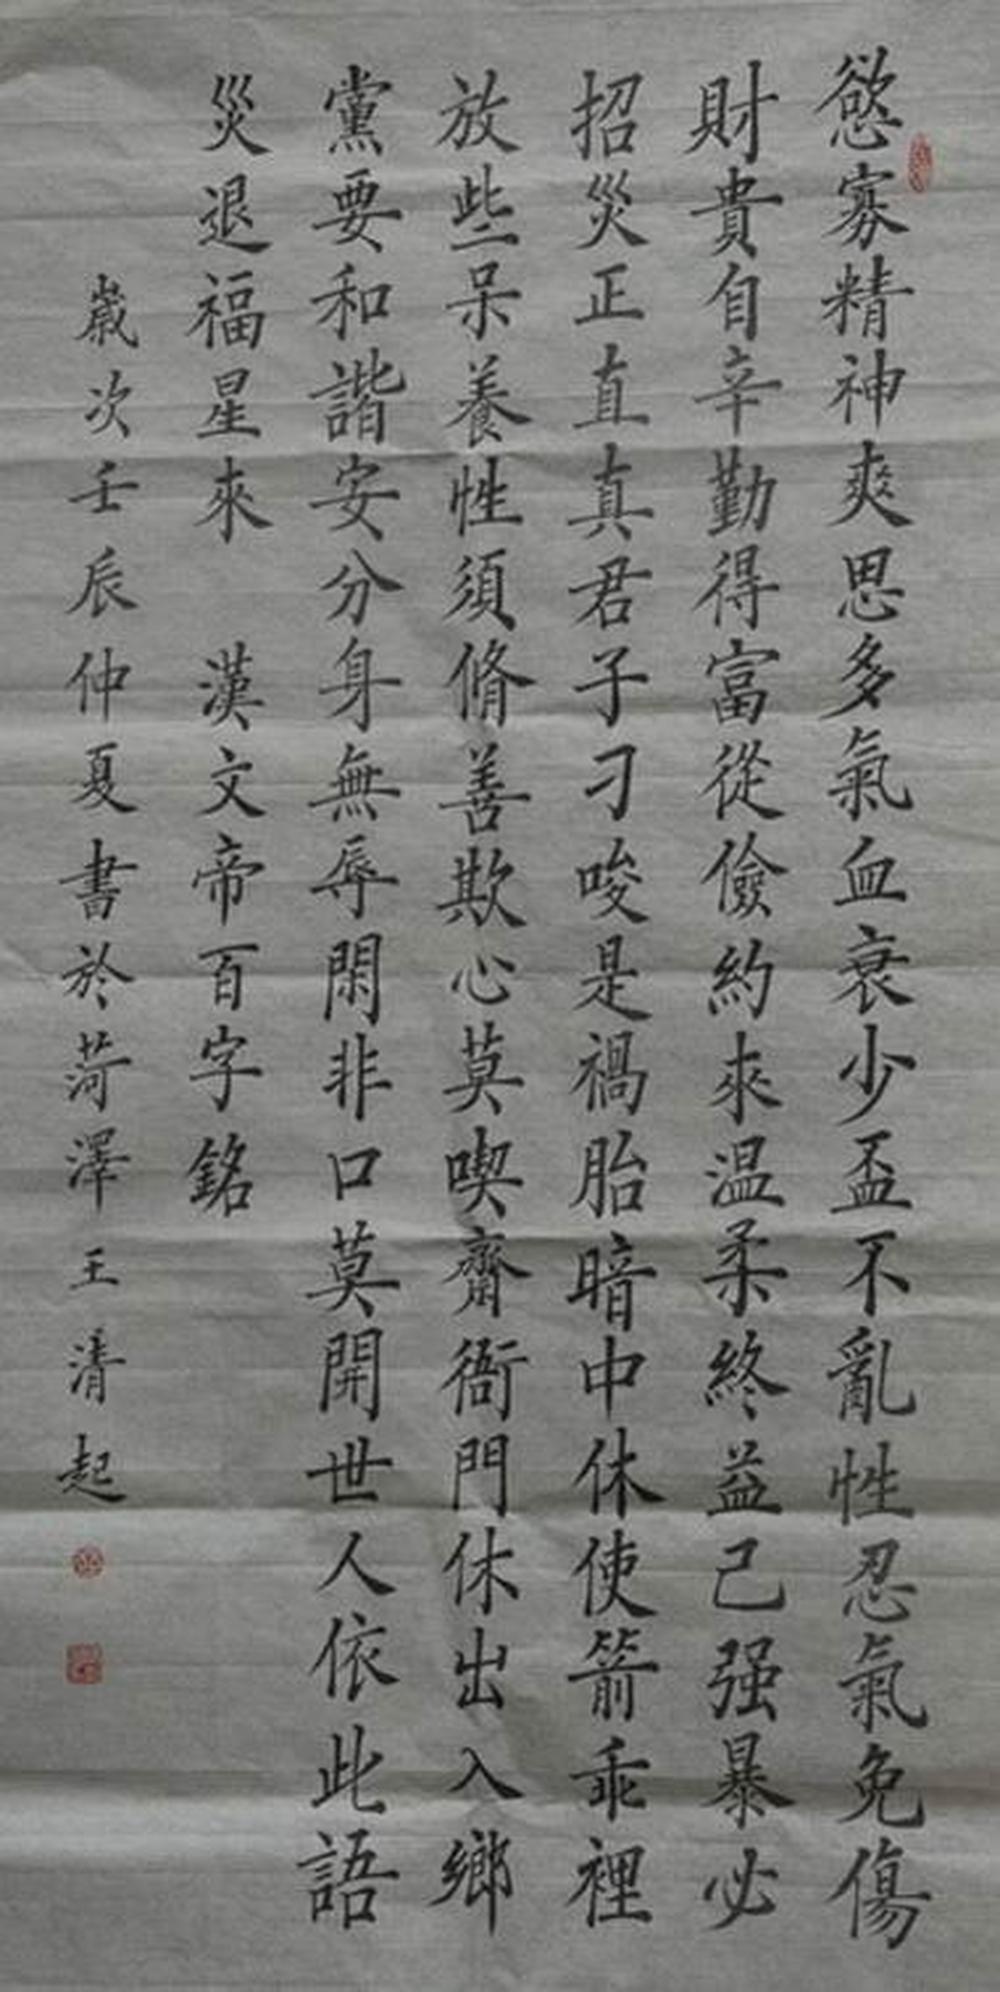 慾寡精神爽思多氣血衰少盃不亂性忍氣免傷
財貴自辛勤得富從儉約來温柔終益己强暴必
招災正直真君子刁唆是禍胎暗中休使箭乖裡
放些呆養性須脩善欺心莫喫齋衙門休出入鄉
黨要和諧安分身無辱閑非口莫開世人依此語
災退福星來 漢文帝百字銘
歲次壬辰仲夏書於菏澤王清起